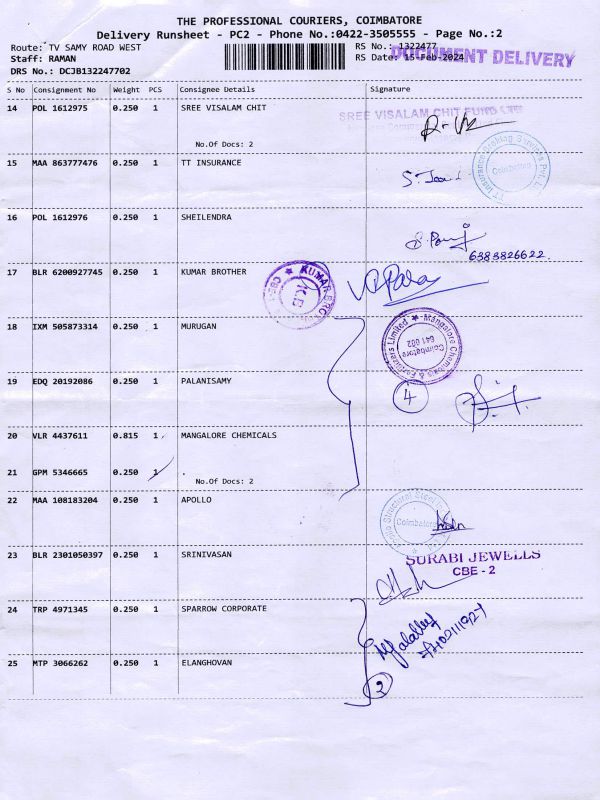 THE PROFESSIONAL COURIERS, COIMBATORE
Delivery Runsheet - PC2 - Phone No.:0422-3505555 - Page No.:2
Route: TV SAMY ROAD WEST
RS No.: 1322477
Staff: RAMAN
RS Date: 15-Feb-2024
DOCUMENT DELIVERY
DRS No.: DCJB132247702
S No Consignment No Weight PCS Consignee Details Signature
14 POL 1612975 0.250 1 SREE VISALAM CHIT
SREE VISALAM CHIT FUND
No.Of Docs: 2
15 MAA 863777476 0.250 1 TT INSURANCE
TT Insurance Broking Services Pvt. Coimbatore
16 POL 1612976 0.250 1 SHEILENDRA
6383826622
17 BLR 6200927745 0.250 1 KUMAR BROTHER
KUMAR K.B
18 IXM 505873314 0.250 1 MURUGAN
Mangalore Chemicals & Fertilizers Limited Coimbatore 641 002
19 EDQ 20192086 0.250 1 PALANISAMY
4
20 VLR 4437611 0.815 1 MANGALORE CHEMICALS
21 GPM 5346665 0.250 1
No.Of Docs: 2
22 MAA 108183204 0.250 1 APOLLO
Structural Steel Coimbatore
23 BLR 2301050397 0.250 1 SRINIVASAN
SURABI JEWELLS
CBE - 2
24 TRP 4971345 0.250 1 SPARROW CORPORATE
25 MTP 3066262 0.250 1 ELANGHOVAN
2